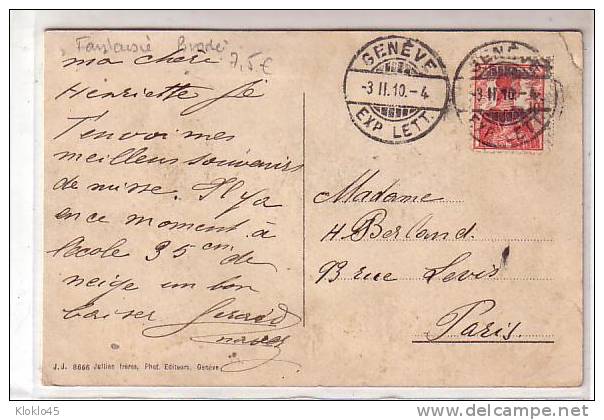 Fantaisie Brodé
7,5€
ma chère
Henriette je
T'envoi mes
meilleurs souvenirs
de nuisse. Il y a
en ce moment à
l'ecole 35 cm de
neige un bon
baiser Gerard
GENÈVE
-3 II.10.-4
EXP. LETT.
GENÈVE
-3 II.10.-4
EXP. LETT.
Madame
H. Berland.
13 rue Levis
Paris.
J.J. 8666 Jullien frères, Phot. Editeurs, Genève.
Kloklo45
http://www.delcampe.net